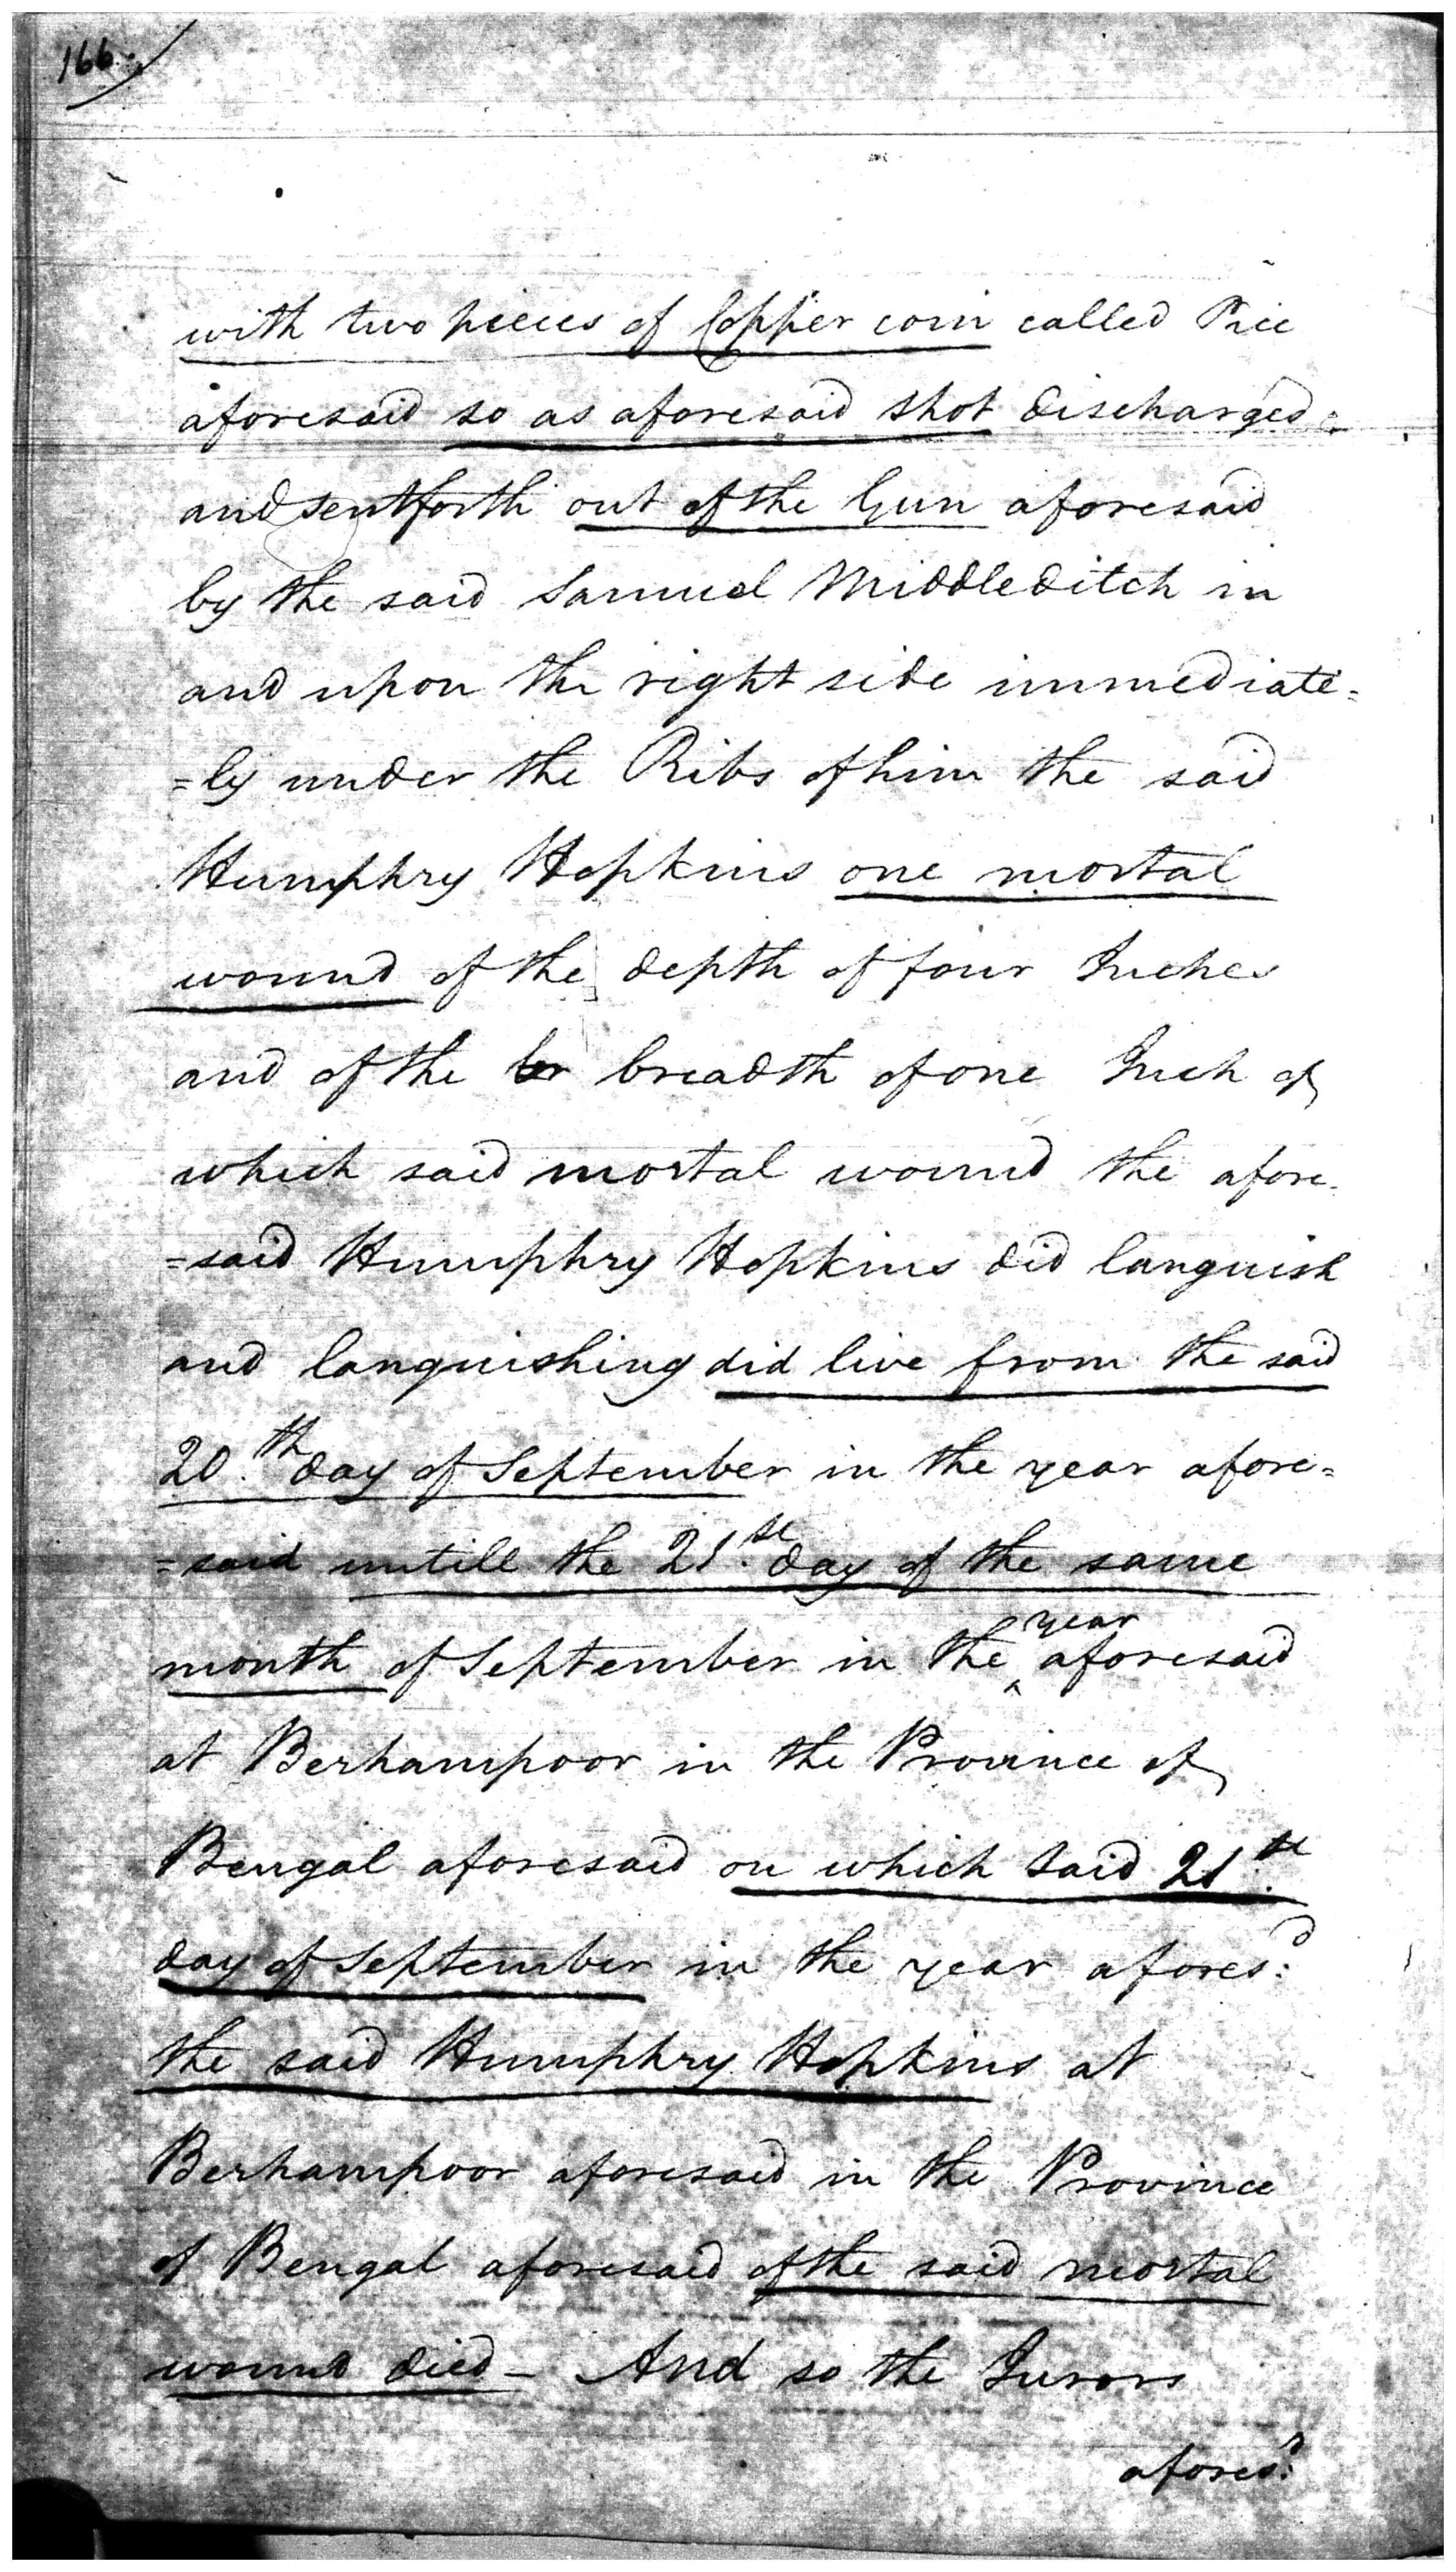 166
with two pieces of Copper coin called Pice
aforesaid so as aforesaid shot discharged
and sent forth out of the Gun aforesaid
by the said Samuel Middleditch in
and upon the right side immediate=
=ly under the Ribs of him the said
Humphry Hopkins one mortal
wound of the depth of four Inches
and of the br breadth of one Inch of
which said mortal wound the afore-
=said Humphry Hopkins did languish
and languishing did live from the said
20.th day of September in the year afore=
=said untill the 21.st day of the same
month of September in the ^year aforesaid
at Berhampoor in the Province of
Bengal aforesaid on which said 21.st
day of September in the year afores:d
the said Humphry Hopkins at
Berhampoor aforesaid in the Province
of Bengal aforesaid of the said mortal
wound died – And so the Jurors
afores:d